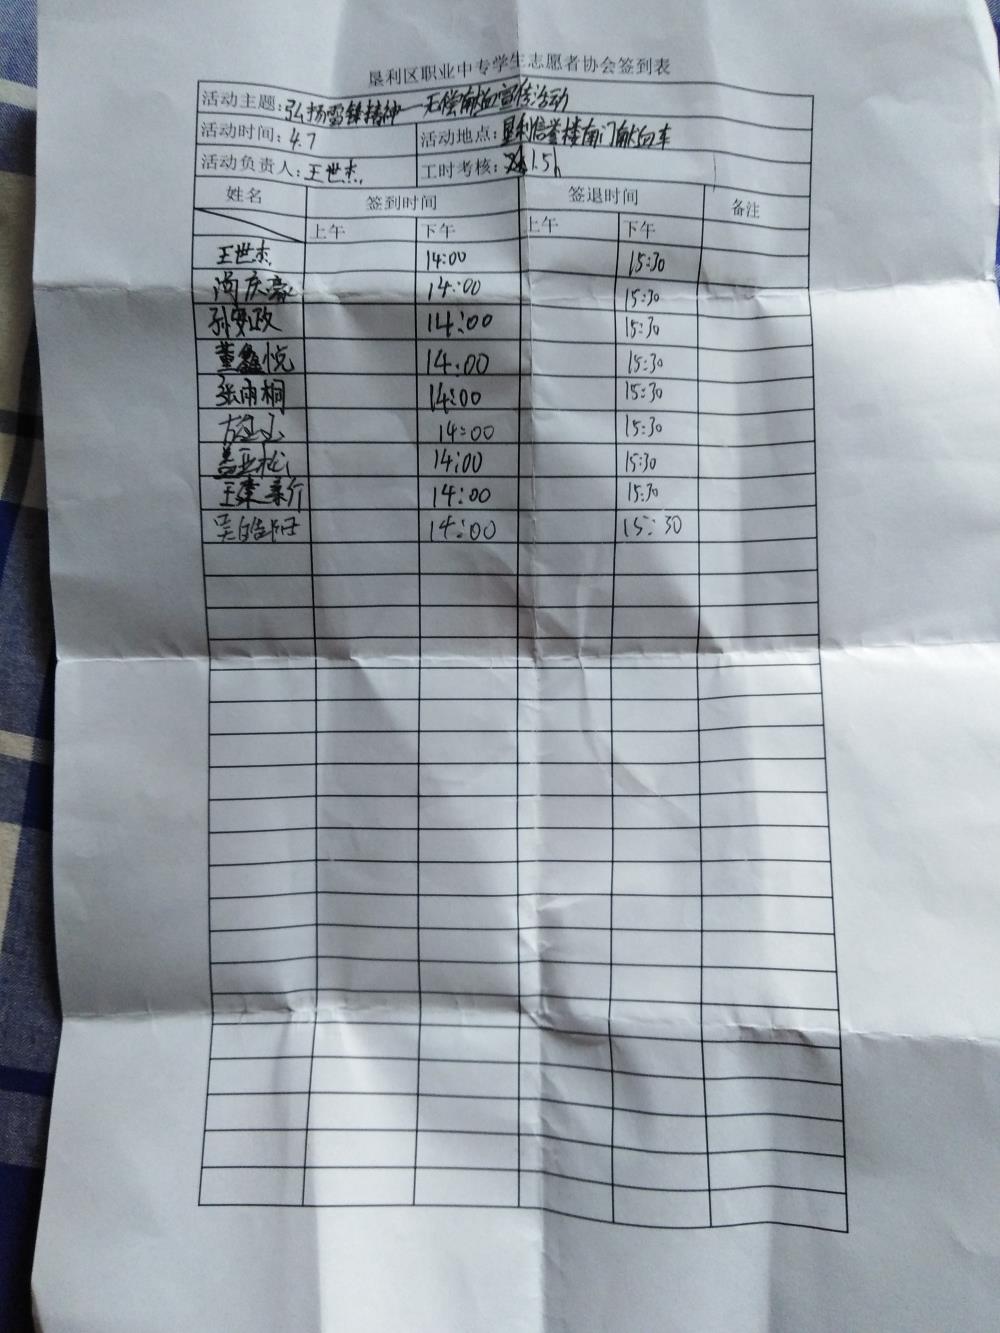 垦利区职业中专学生志愿者协会签到表
活动主题:弘扬雷锋精神—无偿献血宣传活动
活动时间:4.7 活动地点:垦利信誉楼南门献血车
活动负责人:王世杰 工时考核:1.5h
姓名 签到时间 签退时间 备注
上午 下午 上午 下午
王世杰 14:00 15:30
尚庆豪 14:00 15:30
孙安政 14:00 15:30
董鑫悦 14:00 15:30
张雨桐 14:00 15:30
14:00 15:30
盖亚松 14:00 15:30
14:00 15:30
吴皓阳 14:00 15:30